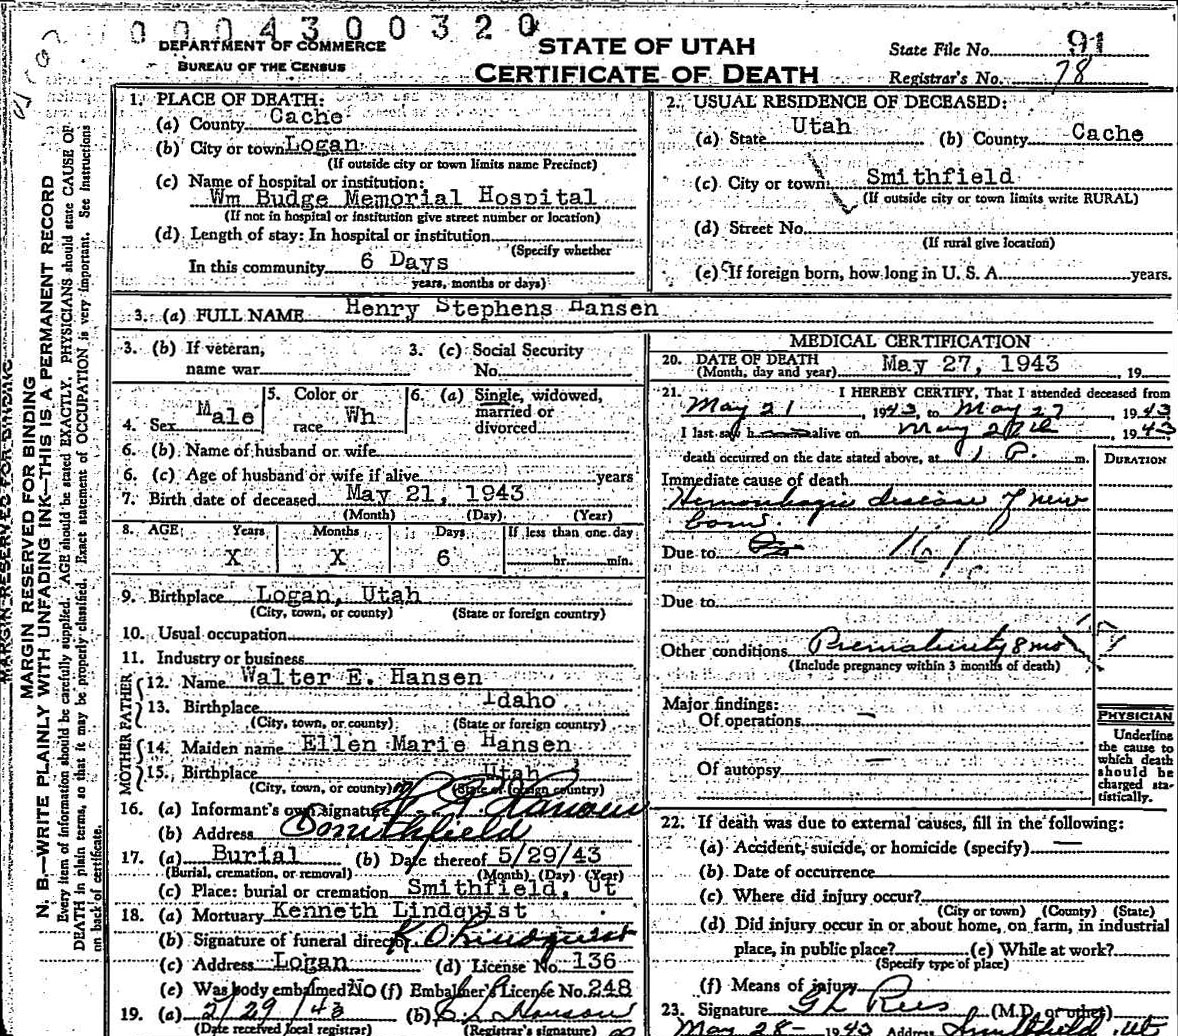 0 0 0 4 3 0 0 3 2 0
DEPARTMENT OF COMMERCE
BUREAU OF THE CENSUS
STATE OF UTAH
CERTIFICATE OF DEATH
State File No. 91
Registrar's No. 78
MARGIN RESERVED FOR BINDING
N. B.—WRITE PLAINLY WITH UNFADING INK—THIS IS A PERMANENT RECORD
Every item of information should be carefully supplied. AGE should be stated EXACTLY. PHYSICIANS should state CAUSE OF
DEATH in plain terms, so that it may be properly classified. Exact statement of OCCUPATION is very important. See Instructions
on back of certificate.
1. PLACE OF DEATH:
(a) County Cache
(b) City or town Logan
(If outside city or town limits name Precinct)
(c) Name of hospital or institution:
Wm Budge Memorial Hospital
(If not in hospital or institution give street number or location)
(d) Length of stay: In hospital or institution
(Specify whether
In this community 6 Days
years, months or days)
2. USUAL RESIDENCE OF DECEASED:
(a) State Utah (b) County Cache
(c) City or town Smithfield
(If outside city or town limits write RURAL)
(d) Street No.
(If rural give location)
(e) If foreign born, how long in U. S. A. years.
3. (a) FULL NAME Henry Stephens Hansen
3. (b) If veteran, name war
3. (c) Social Security No.
4. Sex Male
5. Color or race Wh
6. (a) Single, widowed, married or divorced
6. (b) Name of husband or wife
6. (c) Age of husband or wife if alive years
7. Birth date of deceased May 21, 1943
(Month) (Day) (Year)
8. AGE: Years Months Days If less than one day
X X 6 hr. min.
9. Birthplace Logan, Utah
(City, town, or county) (State or foreign country)
10. Usual occupation
11. Industry or business
FATHER
12. Name Walter E. Hansen
13. Birthplace Idaho
(City, town, or county) (State or foreign country)
MOTHER
14. Maiden name Ellen Marie Hansen
15. Birthplace Utah
(City, town, or county) (State or foreign country)
16. (a) Informant's own signature Hansen
(b) Address Smithfield
17. (a) Burial (b) Date thereof 5/29/43
(Burial, cremation, or removal) (Month) (Day) (Year)
(c) Place: burial or cremation Smithfield, Ut
18. (a) Mortuary Kenneth Lindquist
(b) Signature of funeral director K O Lindquist
(c) Address Logan (d) License No. 136
(e) Was body embalmed? NO (f) Embalmer's License No. 248
19. (a) 5/29/43 (b)
(Date received local registrar) (Registrar's signature)
MEDICAL CERTIFICATION
20. DATE OF DEATH May 27, 1943 , 19
(Month, day and year)
21. I HEREBY CERTIFY, That I attended deceased from
May 21 , 1943, to May 27 , 1943
I last saw h alive on May 27th , 1943
death occurred on the date stated above, at 1 P. m.
DURATION
Immediate cause of death
Hemorrhagic disease of new
born
Due to 161c
Due to
Other conditions Prematurity 8 mo
(Include pregnancy within 3 months of death)
Major findings:
Of operations —
Of autopsy —
PHYSICIAN
Underline
the cause to
which death
should be
charged sta-
tistically.
22. If death was due to external causes, fill in the following:
(a) Accident, suicide, or homicide (specify) —
(b) Date of occurrence
(c) Where did injury occur?
(City or town) (County) (State)
(d) Did injury occur in or about home, on farm, in industrial
place, in public place? (e) While at work?
(Specify type of place)
(f) Means of injury
23. Signature G L Rees (M.D. or other)
May 28 1943 Address Smithfield, Ut